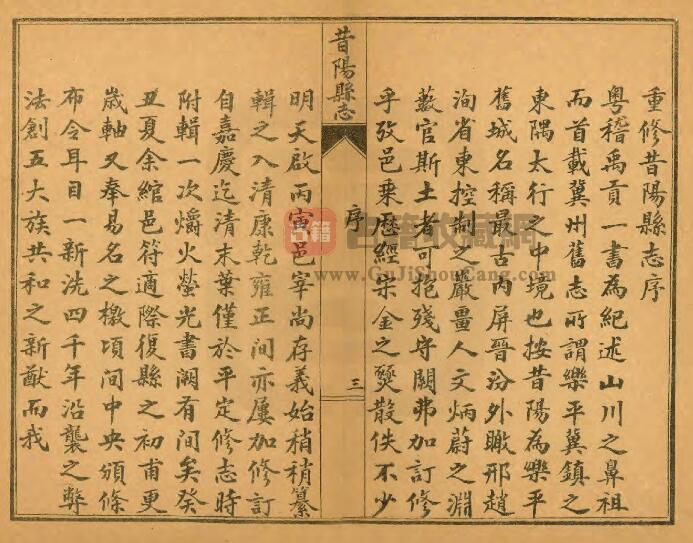 重修昔陽縣志序
粵稽禹貢一書為紀述山川之鼻祖
而首載冀州舊志所謂樂平冀鎮之
東隅太行之中境也按昔陽為樂平
舊城名稱最古內屏晉汾外瞰邢趙
洵省東控制之嚴畺人文炳蔚之淵
藪官斯土者可抱殘守闕弗加訂修
乎攷邑乘歷經宋金之燹散佚不少
昔陽縣志
序
三
明天啟丙寅邑宰尚存義始稍稍纂
輯之入清康乾雍正間亦屢加修訂
自嘉慶迄清末葉僅於平定修志時
附輯一次爝火螢光書闕有間矣癸
丑夏余綰邑符適際復縣之初甫更
歲軸又奉易名之檄頃間中央頒條
布令耳目一新洗四千年沿襲之弊
法創五大族共和之新猷而我
古籍收藏網
www.GuJiShouCang.com